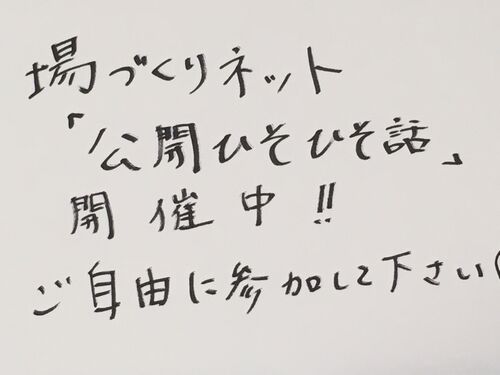 場づくりネット
「公開ひそひそ話」
開催中!!
ご自由に参加して下さい(